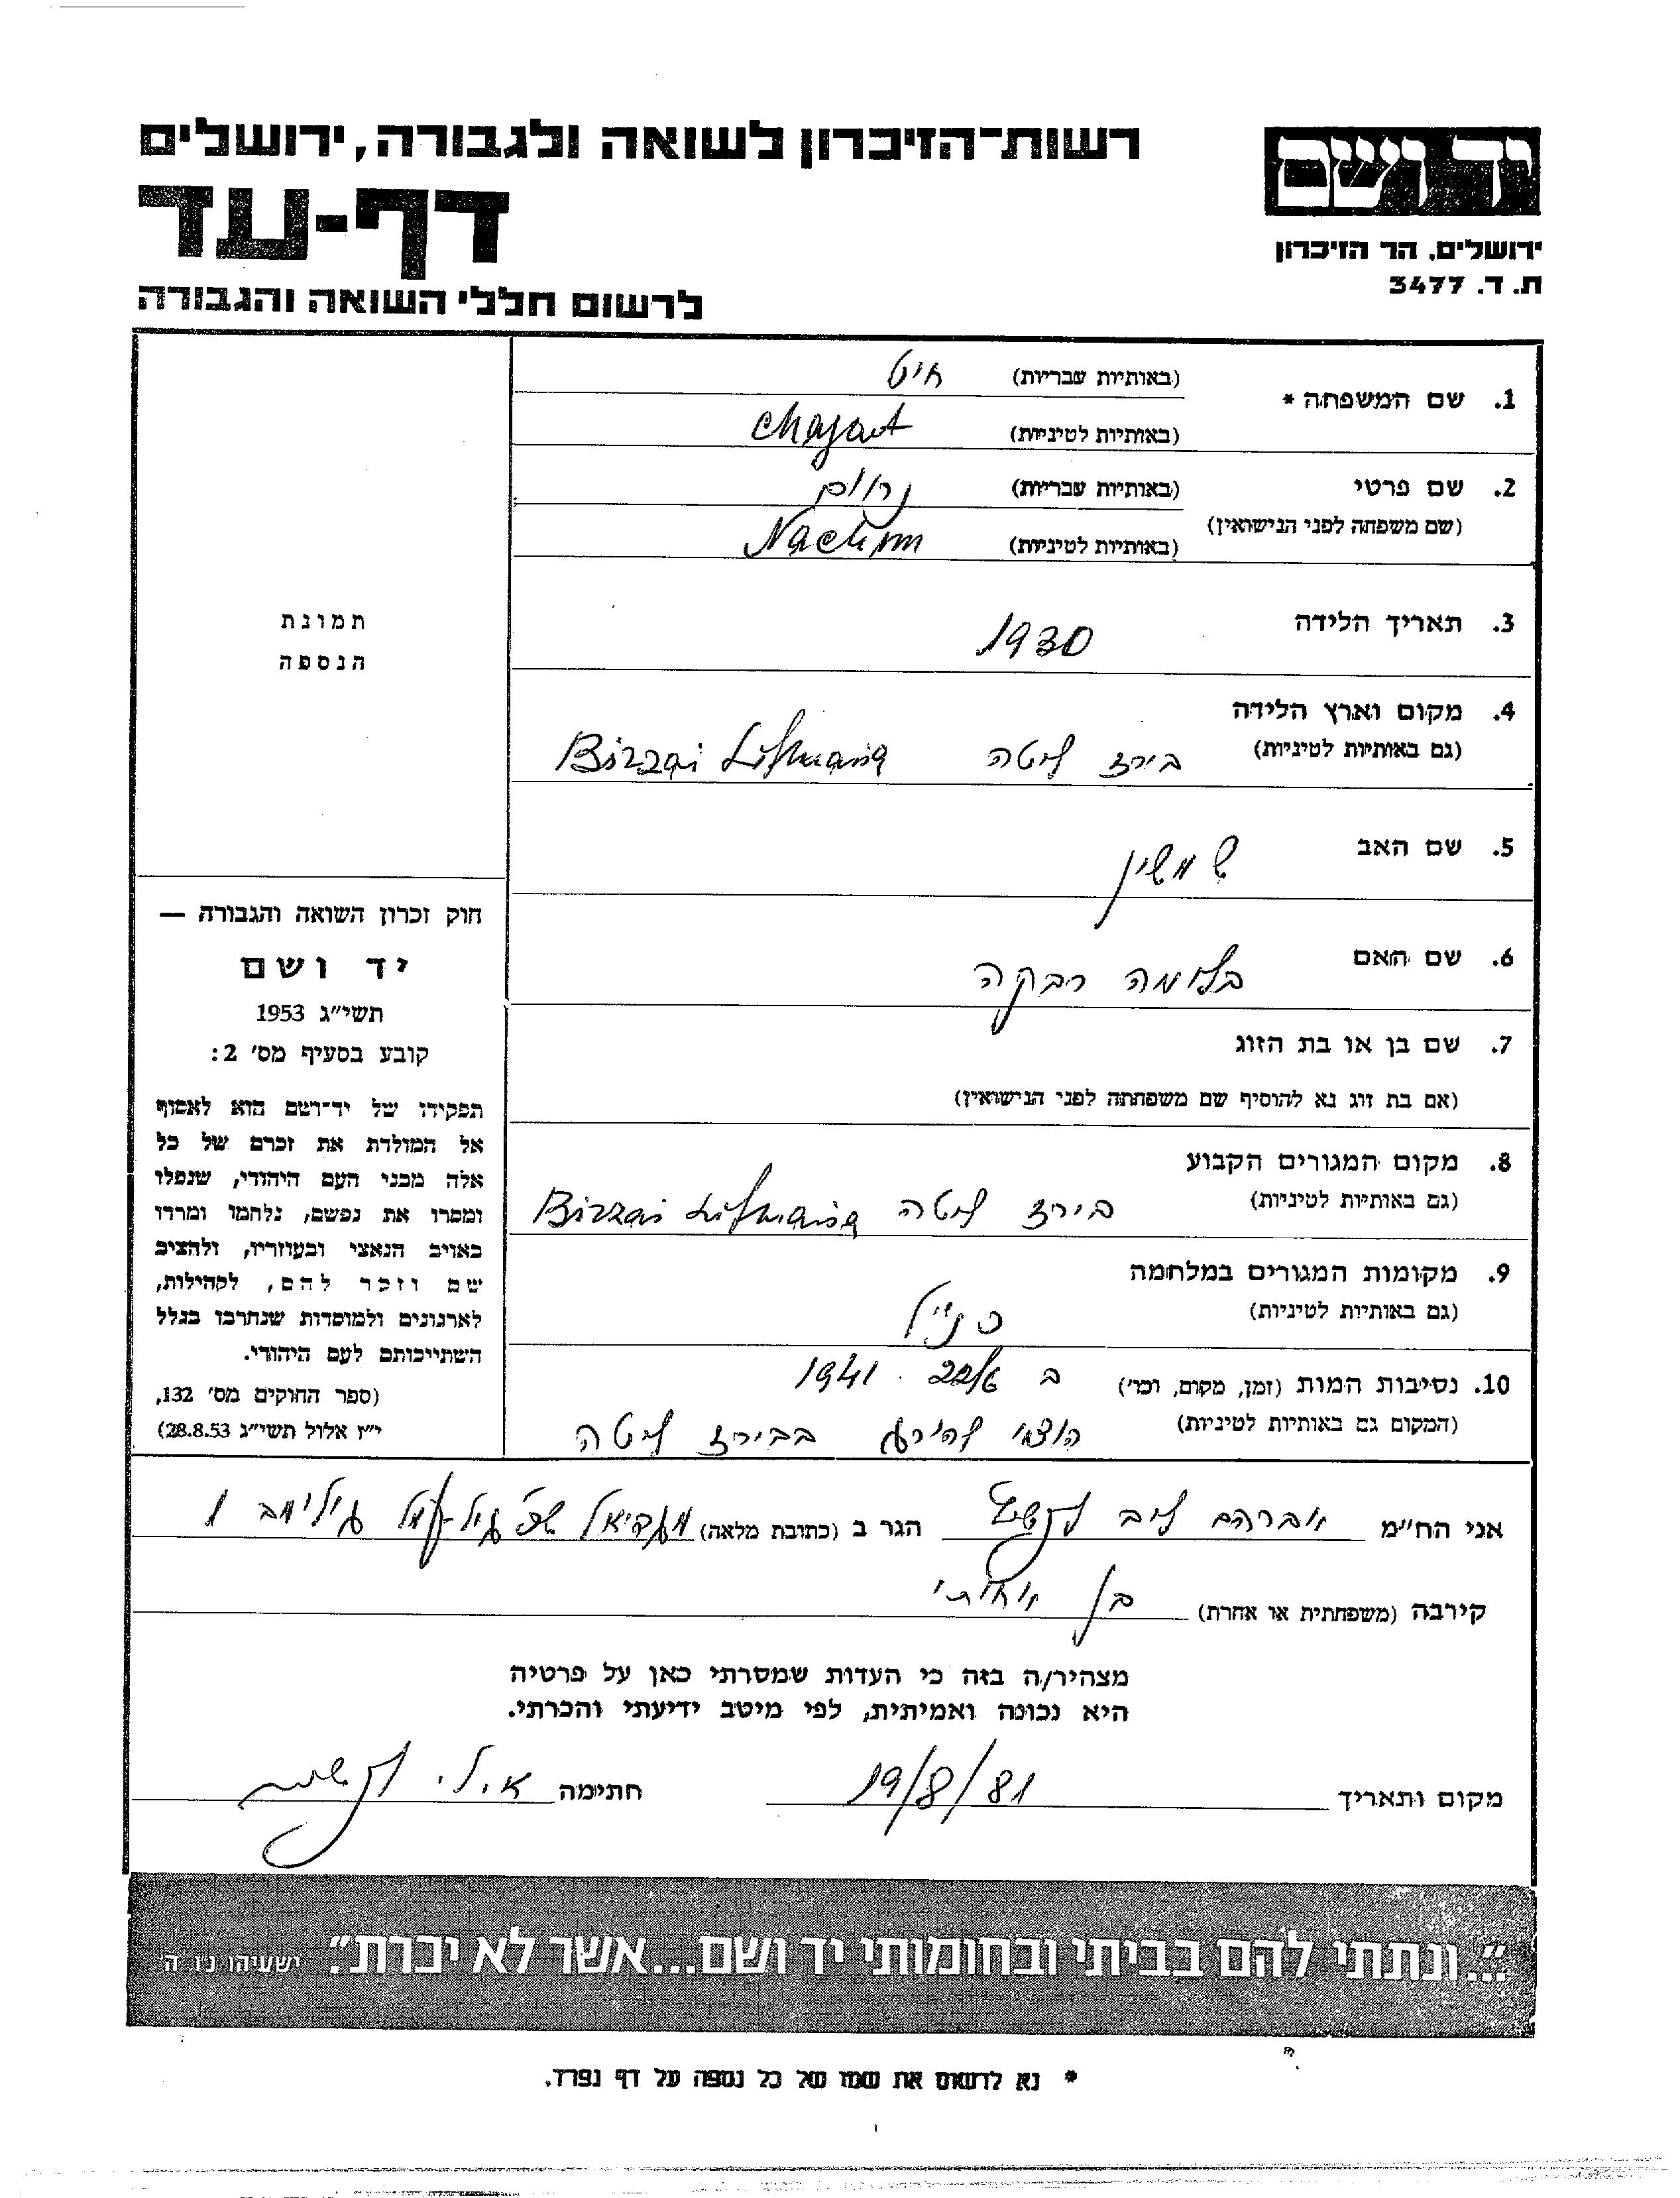 יד ושם
ירושלים, הר הזיכרון
ת. ד. 3477
רשות־הזיכרון לשואה ולגבורה, ירושלים
דף-עד
לרשום חללי השואה והגבורה
1. שם המשפחה * (באותיות עבריות) חיט
(באותיות לטיניות) Chajat
2. שם פרטי (באותיות עבריות) נחום
(שם משפחה לפני הנישואין) (באותיות לטיניות) Nachum
3. תאריך הלידה 1930
4. מקום וארץ הלידה
(גם באותיות לטיניות) בירז ליטה Birzai Lithuania
5. שם האב
6. שם האם בלומה רבקה
7. שם בן או בת הזוג
(אם בת זוג נא להוסיף שם משפחתה לפני הנישואין)
8. מקום המגורים הקבוע
(גם באותיות לטיניות) בירז ליטה Birzai Lithuania
9. מקומות המגורים במלחמה
(גם באותיות לטיניות) כנ"ל
10. נסיבות המות (זמן, מקום, וכו') ב 1941
(המקום גם באותיות לטיניות) הוצאו להורג בבירז ליטה
תמונת
הנספה
חוק זכרון השואה והגבורה —
יד ושם
תשי"ג 1953
קובע בסעיף מס' 2:
תפקידו של יד־ושם הוא לאסוף
אל המולדת את זכרם של כל
אלה מבני העם היהודי, שנפלו
ומסרו את נפשם, נלחמו ומרדו
באויב הנאצי ובעוזריו, ולהציב
שם וזכר להם, לקהילות,
לארגונים ולמוסדות שנחרבו בגלל
השתייכותם לעם היהודי.
(ספר החוקים מס' 132,
י"ז אלול תשי"ג 28.8.53)
אני הח"מ אברהם ליב הגר ב (כתובת מלאה)
קירבה (משפחתית או אחרת) בן אחותי
מצהיר/ה בזה כי העדות שמסרתי כאן על פרטיה
היא נכונה ואמיתית, לפי מיטב ידיעתי והכרתי.
מקום ותאריך 19/8/81 חתימה
"...ונתתי להם בביתי ובחומותי יד ושם...אשר לא יכרת". ישעיהו נו, ה
* נא לרשום את שמו של כל נספה על דף נפרד.